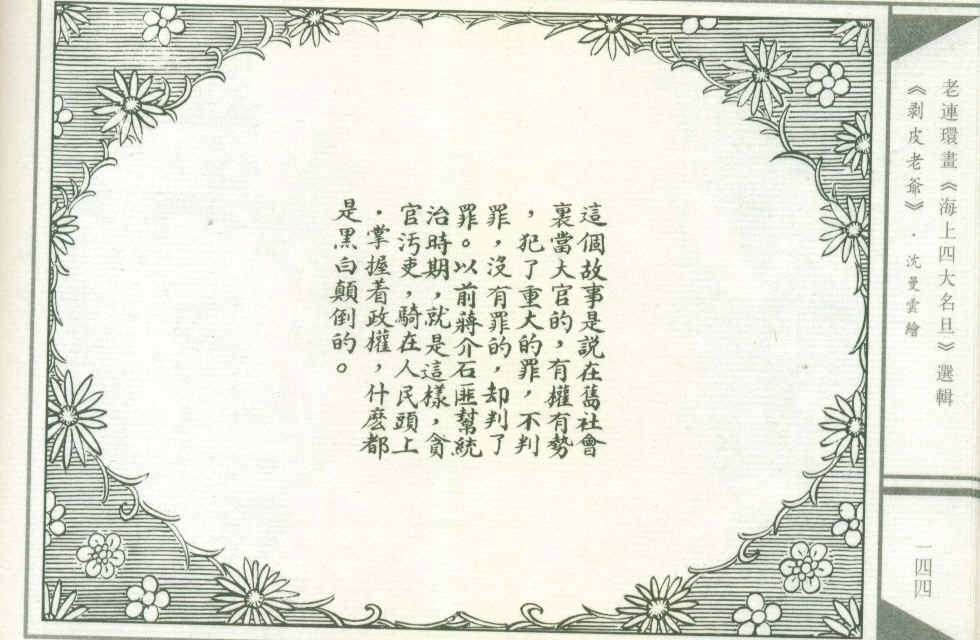 老連環畫《海上四大名旦》選輯
《剥皮老爺》·沈曼雲繪
這個故事是説在舊社會
裏當大官的，有權有勢
，犯了重大的罪，不判
罪，沒有罪的，却判了
罪。以前蔣介石匪幫統
治時期，就是這樣，貪
官汚吏，騎在人民頭上
，掌握着政權，什麽都
是黑白顛倒的。
一四四